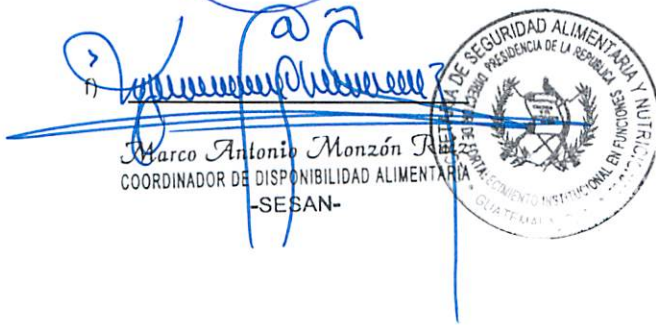 f)
Marco Antonio Monzón Ruiz
COORDINADOR DE DISPONIBILIDAD ALIMENTARIA
-SESAN-
DE SEGURIDAD ALIMENTARIA Y NUTRICIO
PRESIDENCIA DE LA REPUBLICA
INSTITUCIONAL EN FUNCIONES
GUATEMALA